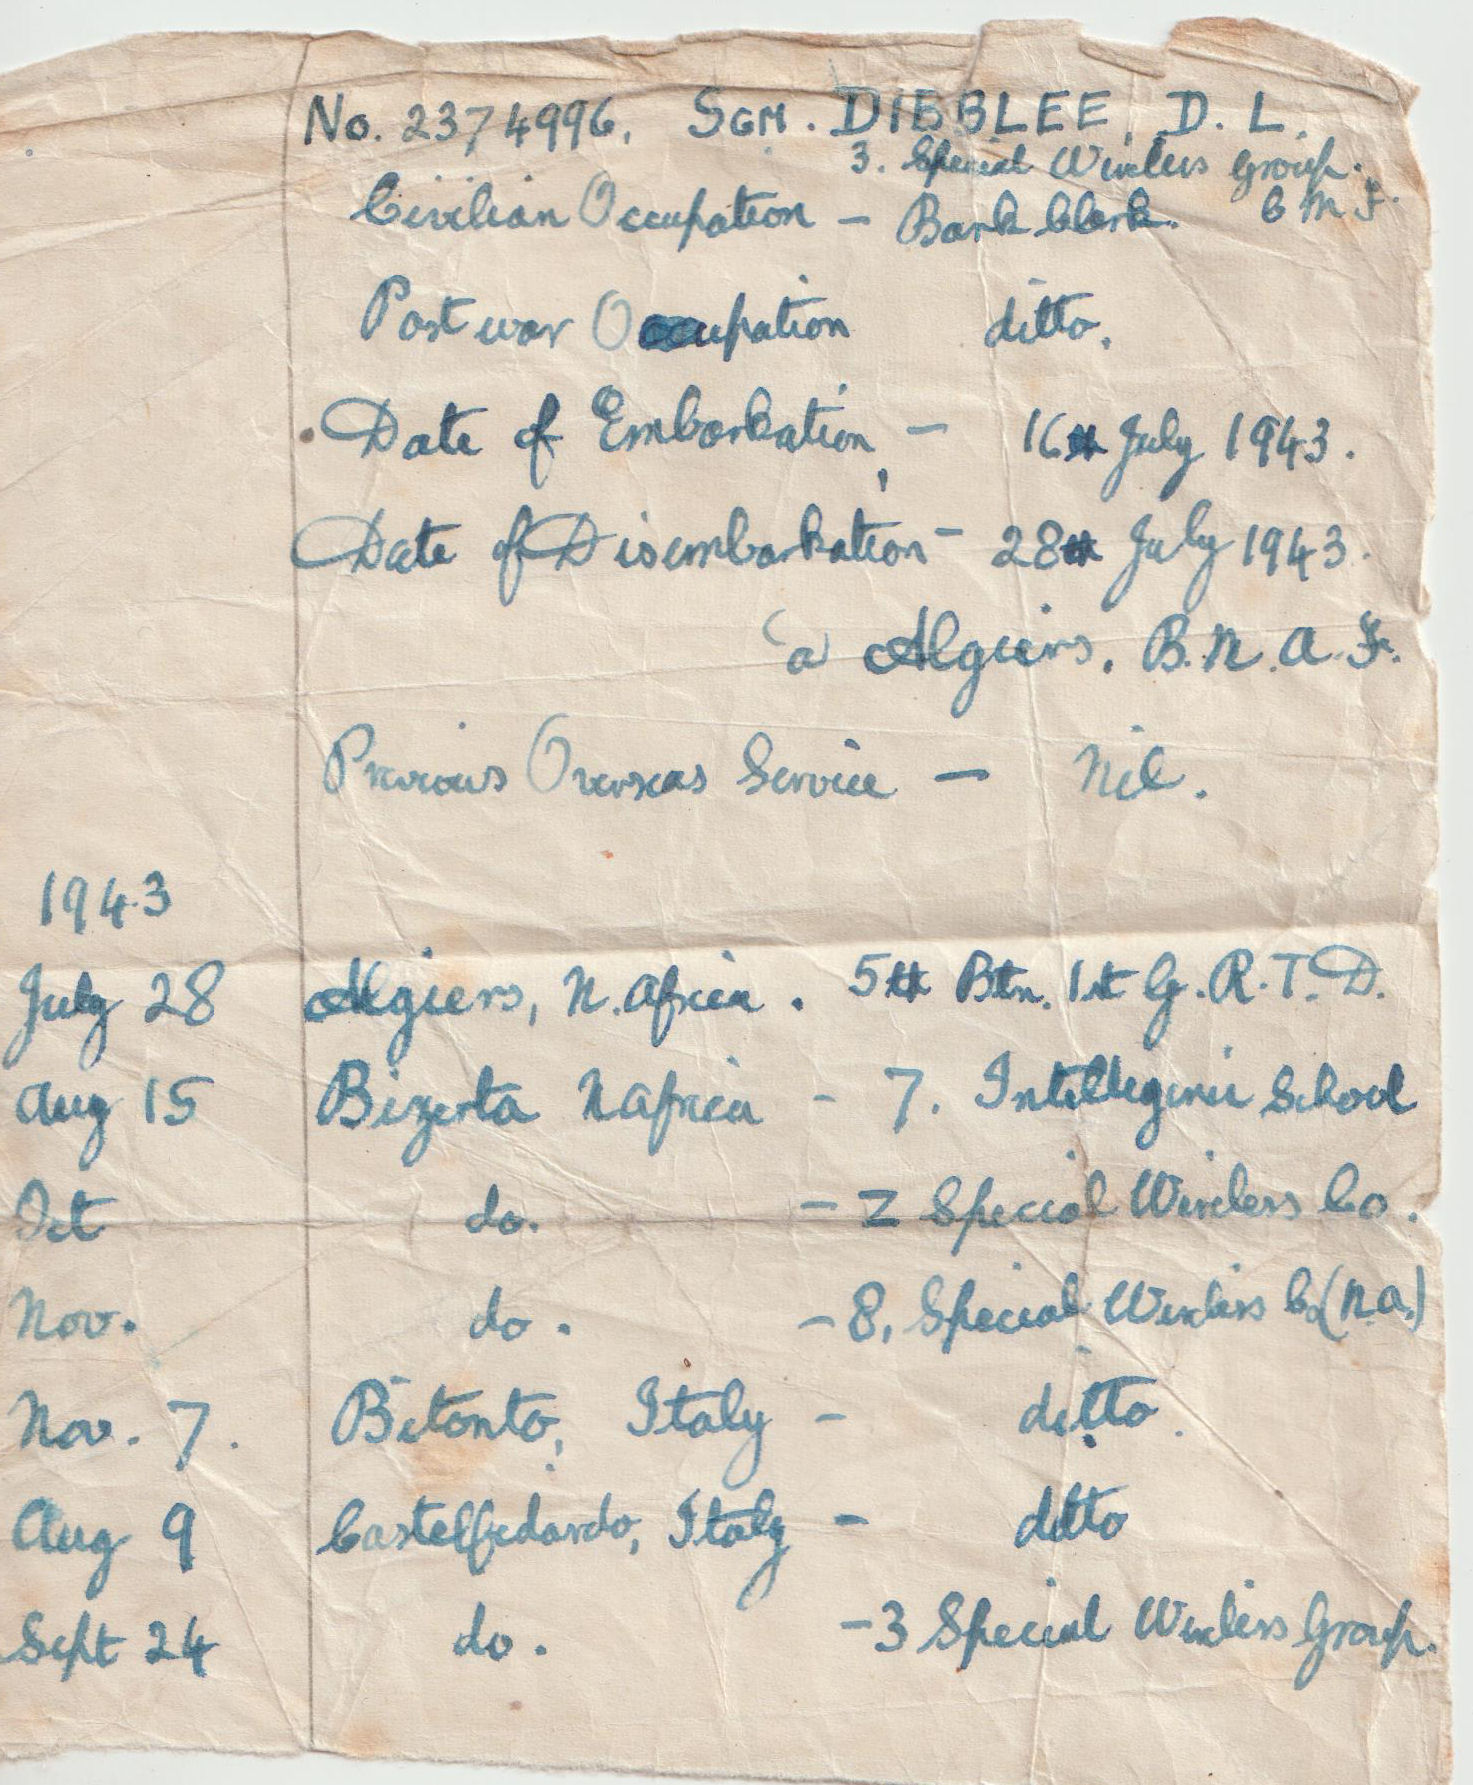 No. 2374996. SGM. DIBBLEE, D. L.
3. Special Wireless Group.
Civilian Occupation - Bank Clerk. C M F.
Post war Occupation ditto.
Date of Embarkation, - 16th July 1943.
Date of Disembarkation - 28th July 1943.
a Algiers, B. N. A. F.
Previous Overseas Service - Nil.
1943
July 28 Algiers, N. Africa. 5th Btn. 1st G. R. T. D.
Aug 15 Bizerta N Africa - 7. Intelligence School
Oct do. - 2 Special Wireless Co.
Nov. do. - 8, Special Wireless Co (N.A.)
Nov. 7. Bitonto, Italy - ditto.
Aug 9 Castelfidardo, Italy - ditto
Sept 24 do. - 3 Special Wireless Group.